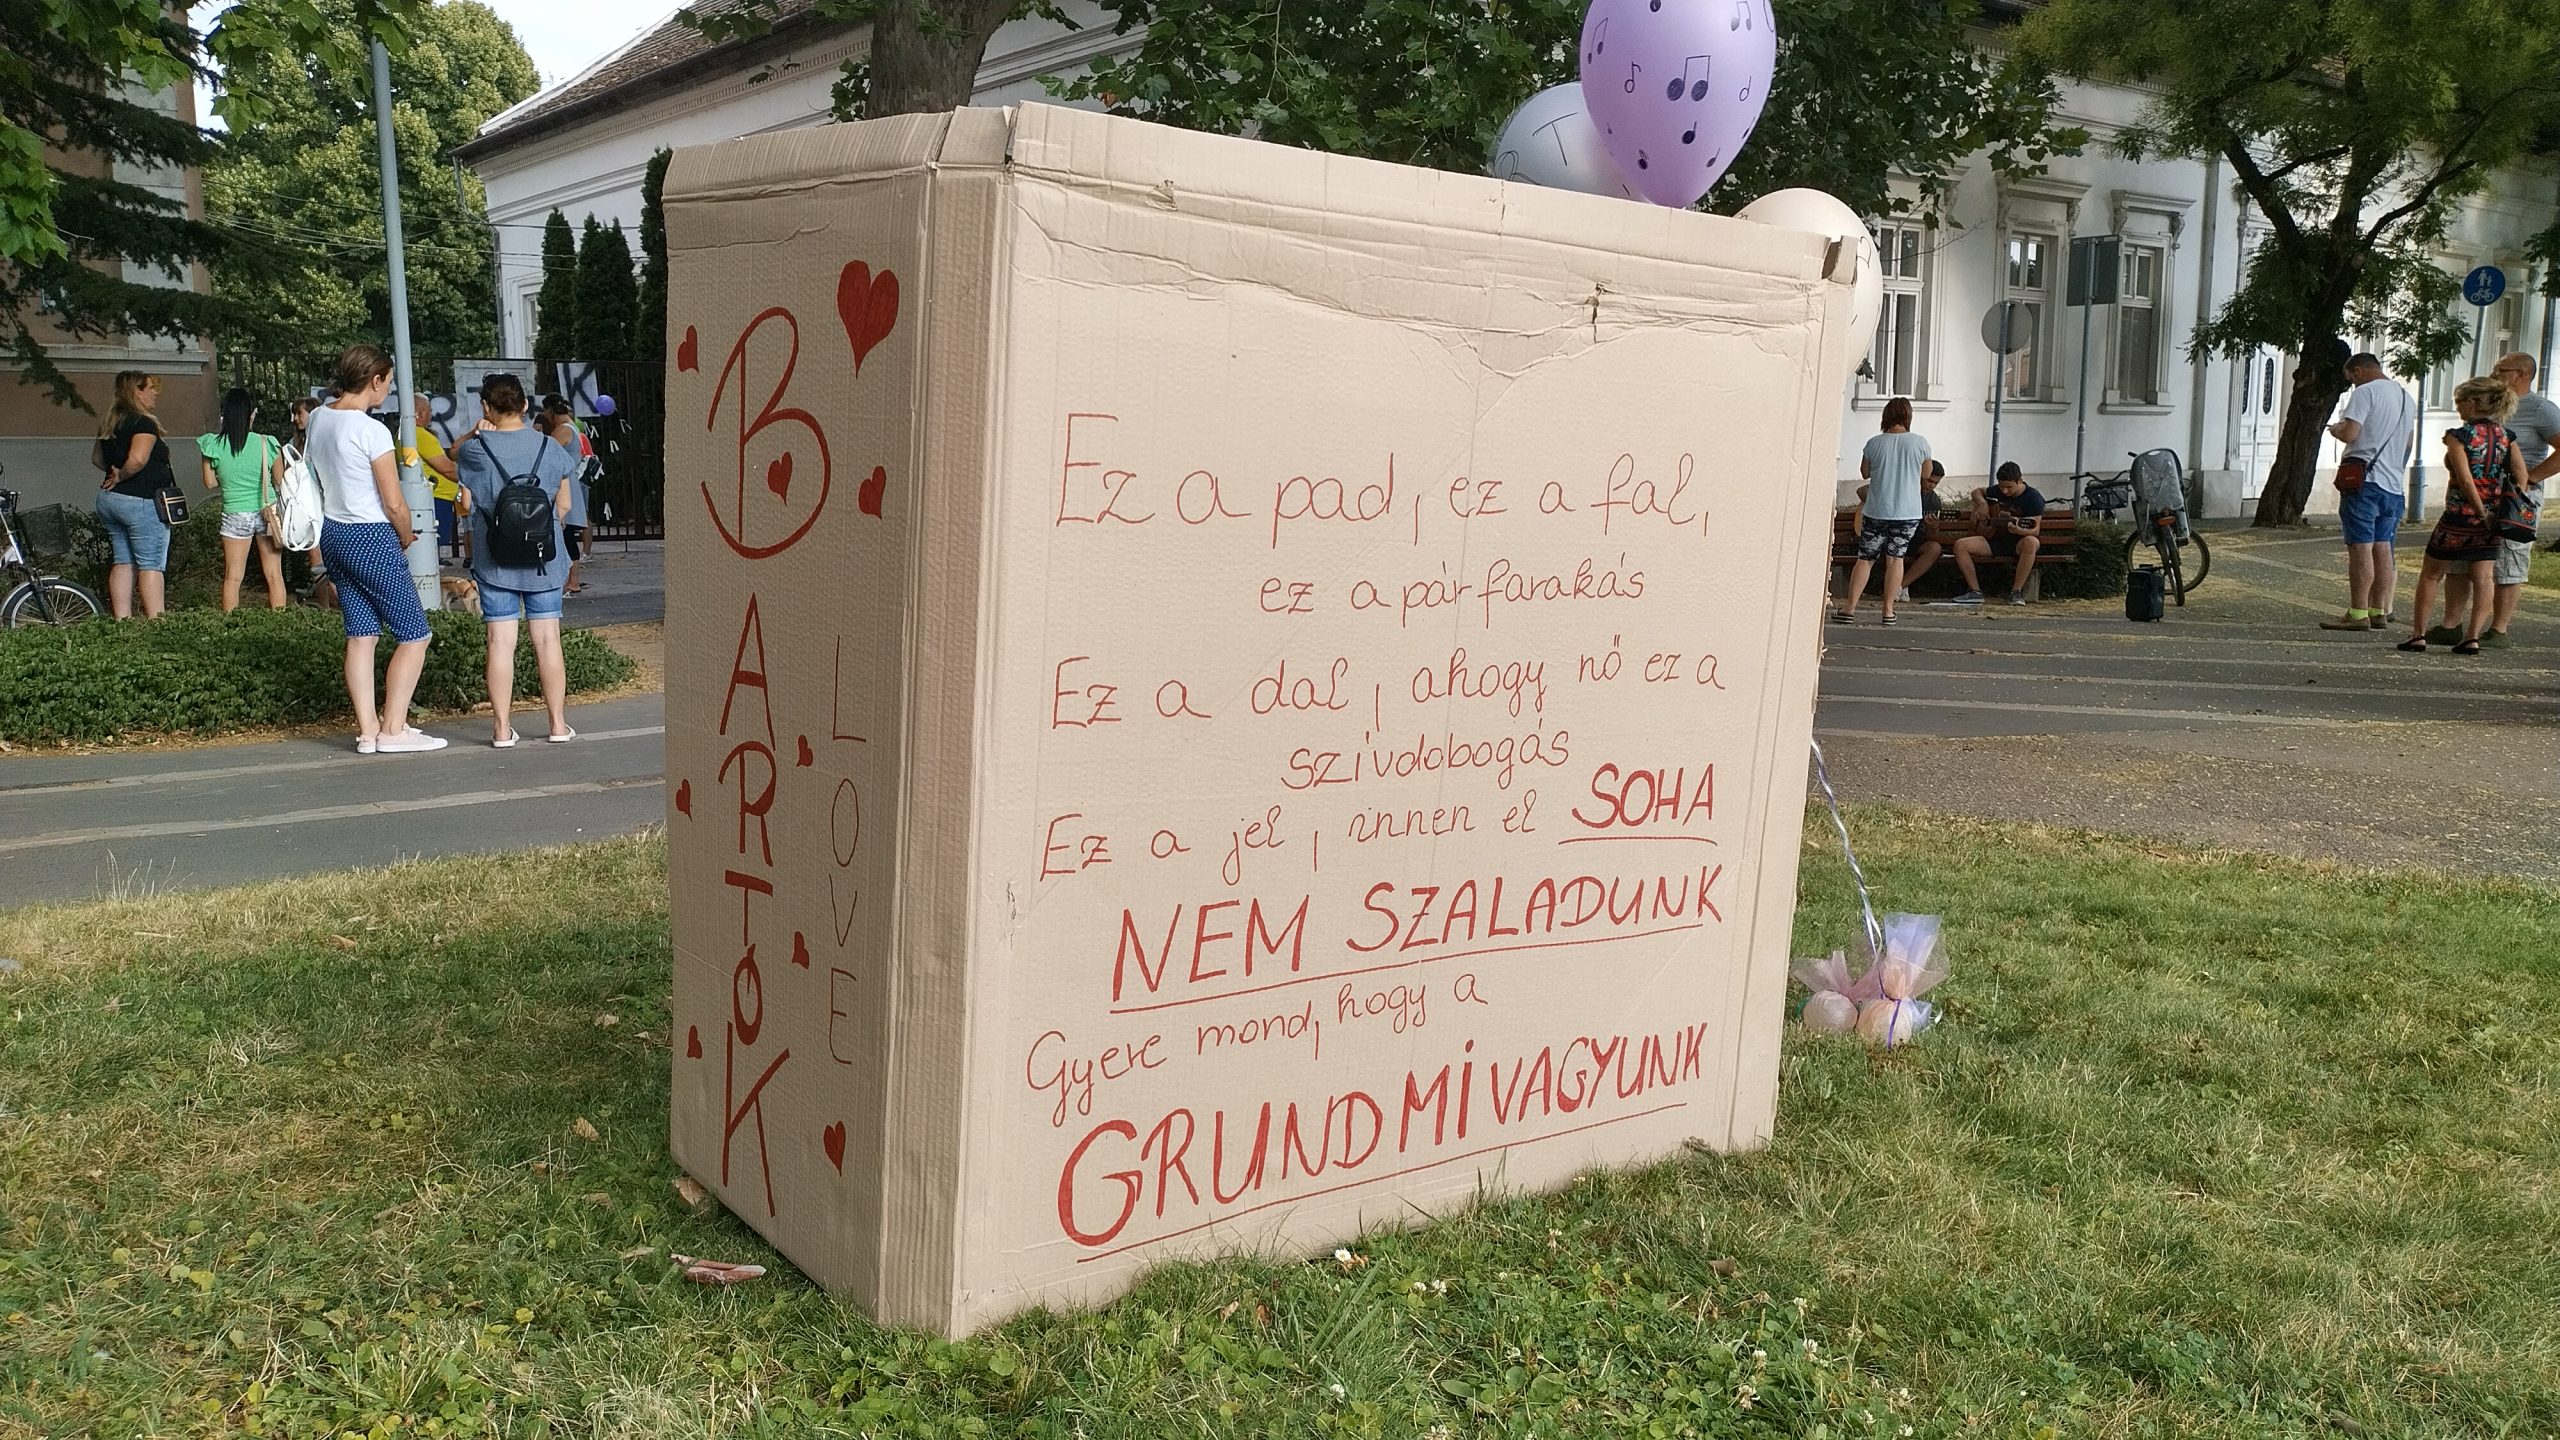 BARTÓK
LOVE
Ez a pad, ez a fal,
ez a pár farakás
Ez a dal, ahogy nő ez a
szívdobogás
Ez a jel, innen el SOHA
NEM SZALADUNK
Gyere mond, hogy a
GRUND MI VAGYUNK